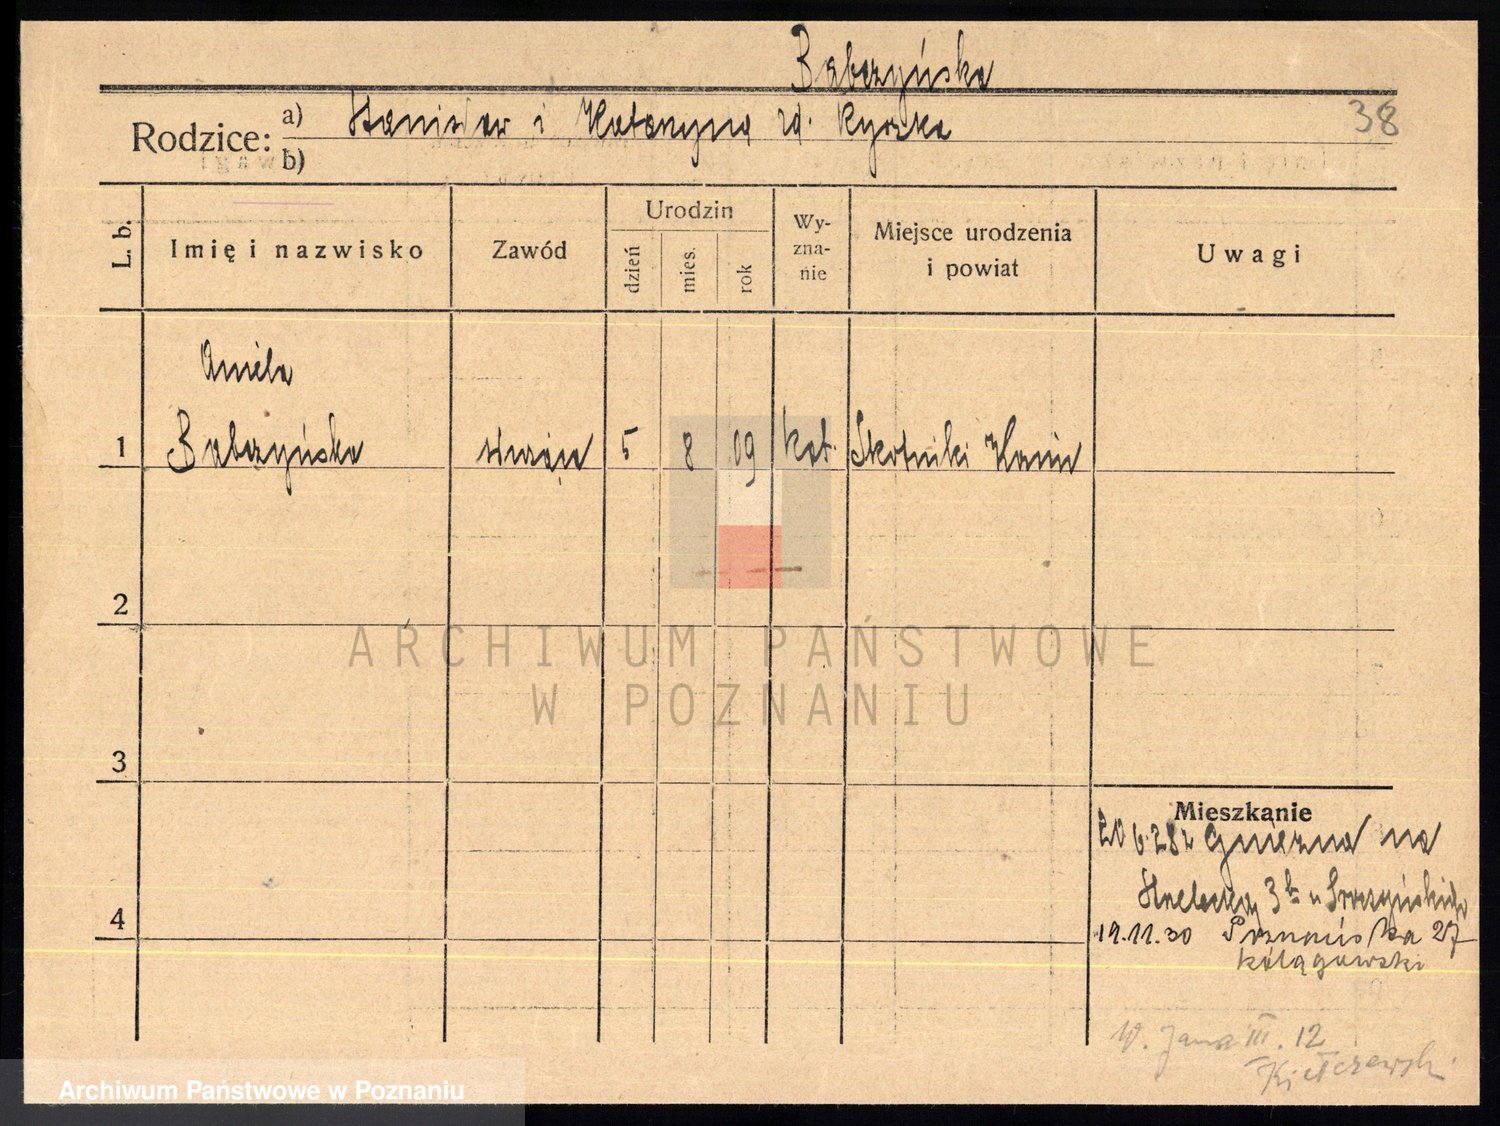 Babczyńska
Rodzice: a) Stanisław i Katarzyna zd. Ryczka
b)
38
L. b.
Imię i nazwisko
Zawód
Urodzin
dzień
mies.
rok
Wy-
zna-
nie
Miejsce urodzenia
i powiat
Uwagi
Aniela
1 Babczyńska służąca 5 8 09 kat. Skotniki
2
3
4
Mieszkanie
20 6 28 z Gniezna na
3
19.11.30 Poznańska 27
W. Jana III. 12
Kiełczewski
ARCHIWUM PAŃSTWOWE
W POZNANIU
Archiwum Państwowe w Poznaniu